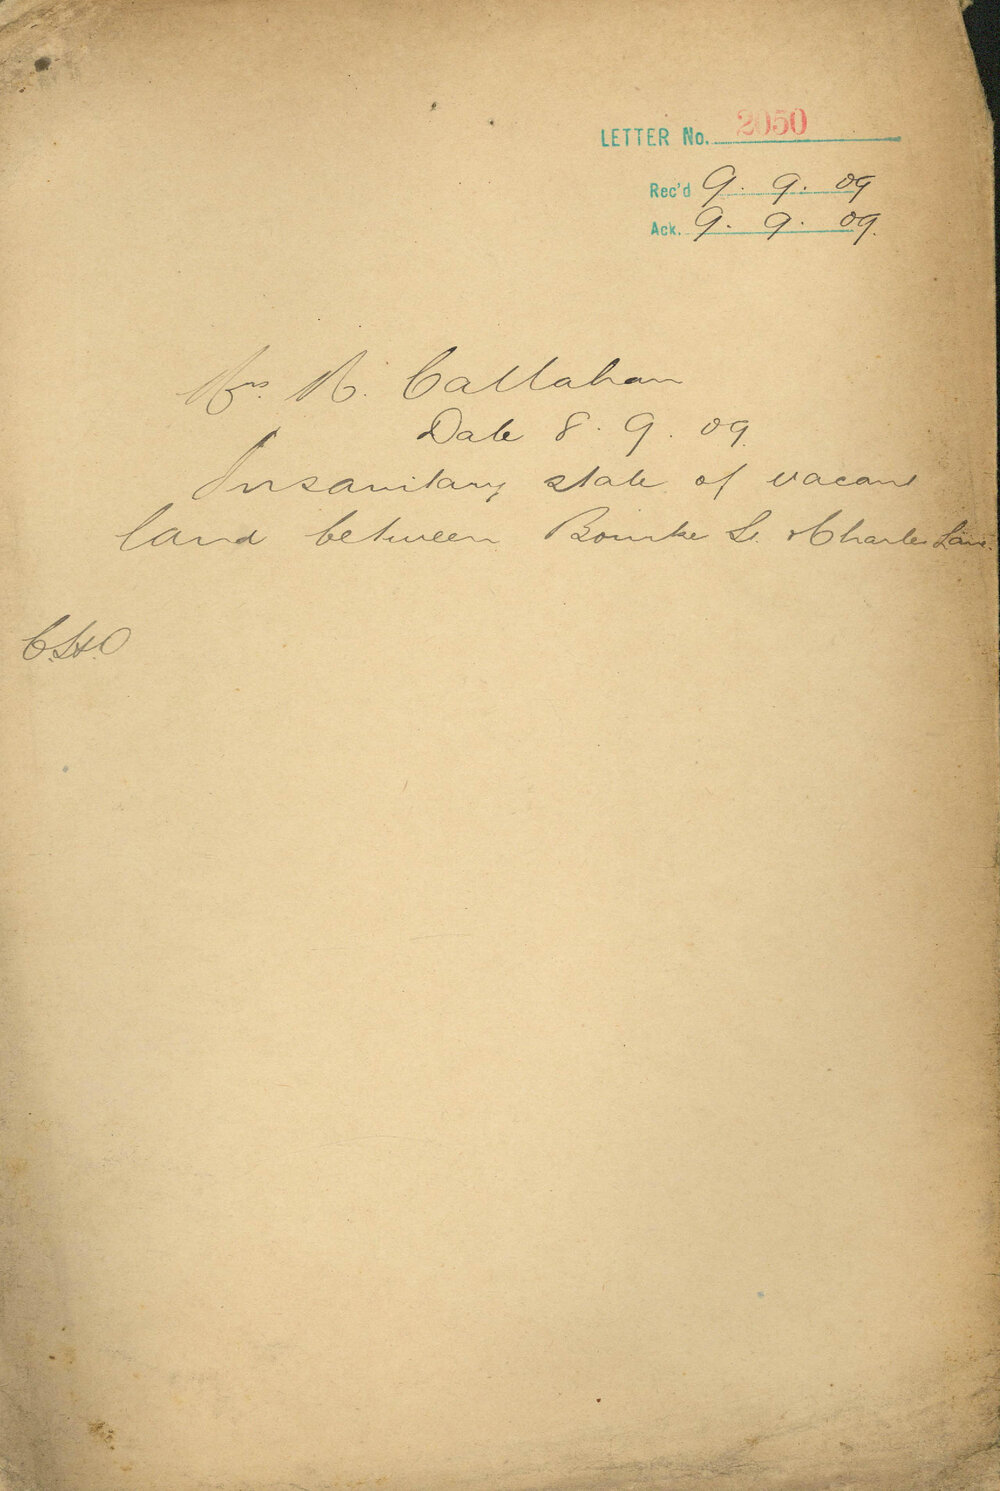 LETTER No. 2050
Rec'd 9. 9. 09
Ack. 9. 9. 09.
Mrs. R. Callahan
Date 8. 9. 09
Insanitary state of vacant
land between Bourke St. & Charles Lane.